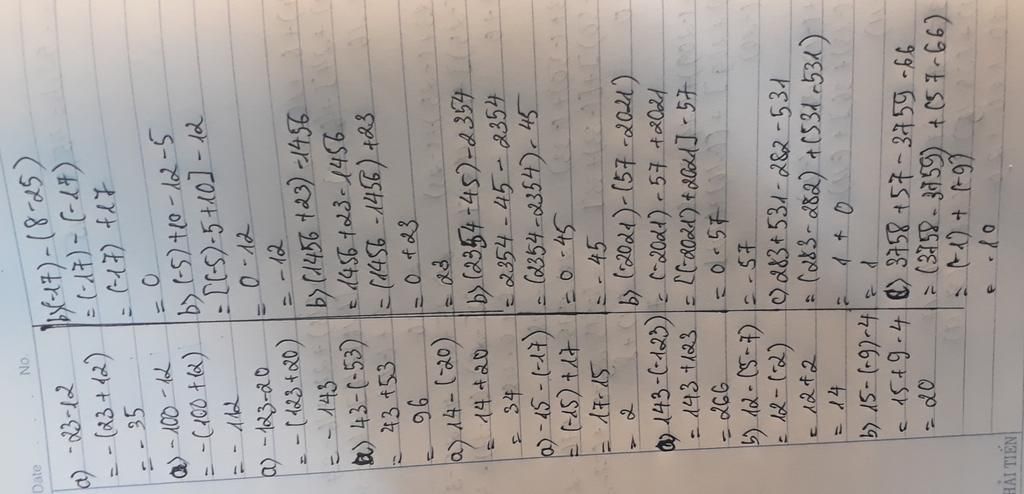 Date
No.
a) -23-12
= -(23+12)
= -35
a) -100-12
= -(100+12)
= -12
a) -123-20
= -(123+20)
= -143
a) 43-(-53)
= 43+53
= 96
a) 14-(-20)
= 14+20
= 34
a) -15-(-17)
= (-15)+17
= 17-15
= 2
a) 143-(-123)
= 143+123
= 266
b) 12-(5-7)
= 12-(-2)
= 12+2
= 14
b) 15-(-9)-4
= 15+9-4
= 20
b) (-17)-(8-25)
= (-17)-(-17)
= (-17)+17
= 0
b) (-5)+10-12-5
= [(-5)-5+10]-12
= 0-12
= -12
b) (1456+23)-1456
= 1456+23-1456
= (1456-1456)+23
= 0+23
= 23
b) (2354-45)-2354
= 2354-45-2354
= (2354-2354)-45
= 0-45
= -45
b) (-2021)-(57-2021)
= (-2021)-57+2021
= [(-2021)+2021]-57
= 0-57
= -57
c) 283+531-282-531
= (283-282)+(531-531)
= 1+0
= 1
c) 3758+57-3759-66
= (3758-3759)+(57-66)
= (-1)+(-9)
= -10
HẢI TIẾN